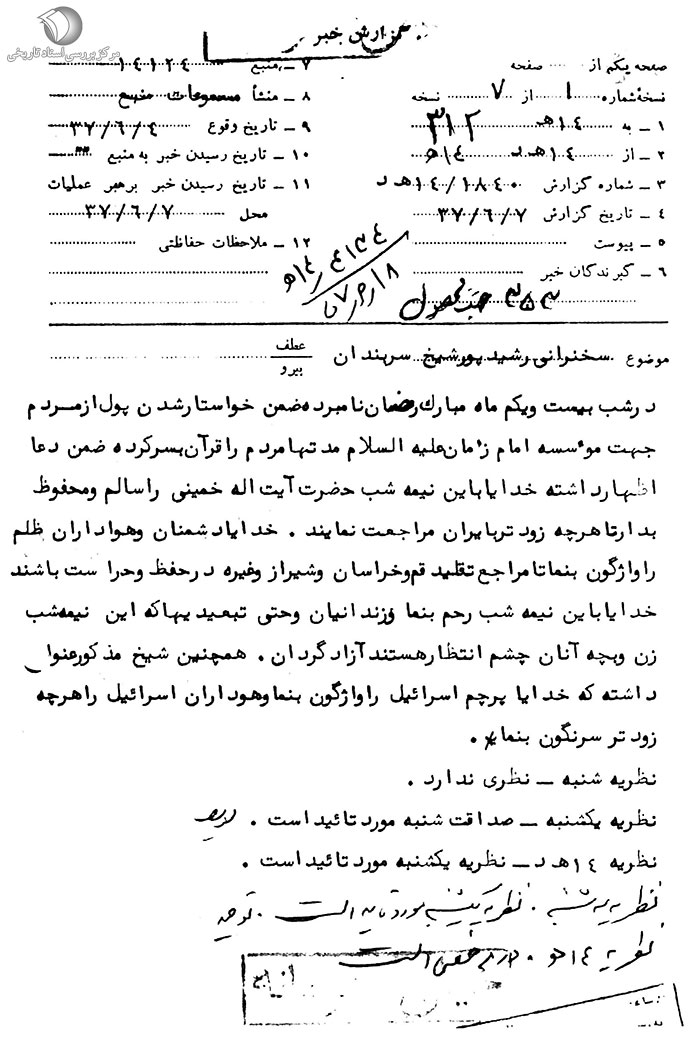 مرکز بررسی اسناد تاریخی
گزارش خبر
صفحه یکم از ........ صفحه
نسخهٔ شماره ۱ از ۷ نسخه
۱ ــ به ۱۴هـ ۳۱۲
۲ ــ از ۱۴هـ د ۱۴
۳ ــ شماره گزارش ۱۴/۱۸۴۰هـ د
۴ ــ تاریخ گزارش ۳۷/۶/۷
۵ ــ پیوست
۶ ــ گیرندگان خبر
۷ ــ منبع ۱۴۱۲۴
۸ ــ منشأ مسموعات منبع
۹ ــ تاریخ وقوع ۳۷/۶/۴
۱۰ ــ تاریخ رسیدن خبر به منبع
۱۱ ــ تاریخ رسیدن خبر برهبر عملیات
محل ۳۷/۶/۷
۱۲ ــ ملاحظات حفاظتی
موضوع سخنرانی رشید پور شیخ سربندان
عطف
پیرو
در شب بیست ویکم ماه مبارك رمضان نامبرده ضمن خواستار شدن پول از مردم
جهت موٴسسه امام زمان علیه السلام مدتها مردم را قرآن بسر کرده ضمن دعا
اظهار داشته خدایا باین نیمه شب حضرت آیت اله خمینی را سالم ومحفوظ
بدار تا هرچه زود تر بایران مراجعت نمایند . خدایا دشمنان وهواداران ظلم
را واژگون بنما تا مراجع تقلید قم وخراسان وشیراز وغیره در حفظ وحراست باشند
خدایا باین نیمه شب رحم بنما وزندانیان وحتی تبعید یها که این نیمه شب
زن وبچه آنان چشم انتظار هستند آزاد گردان . همچنین شیخ مذکور عنوان
داشته که خدایا پرچم اسرائیل را واژگون بنما وهوداران اسرائیل را هرچه
زود تر سرنگون بنما .
نظریه شنبه ــ نظری ندارد .
نظریه یکشنبه ــ صداقت شنبه مورد تائید است .
نظریه ۱۴هـ د ــ نظریه یکشنبه مورد تائید است .
نظریه سه شنبه . نظریه یکشنبه مورد تایید است .
نظریه ۱۴هـ .